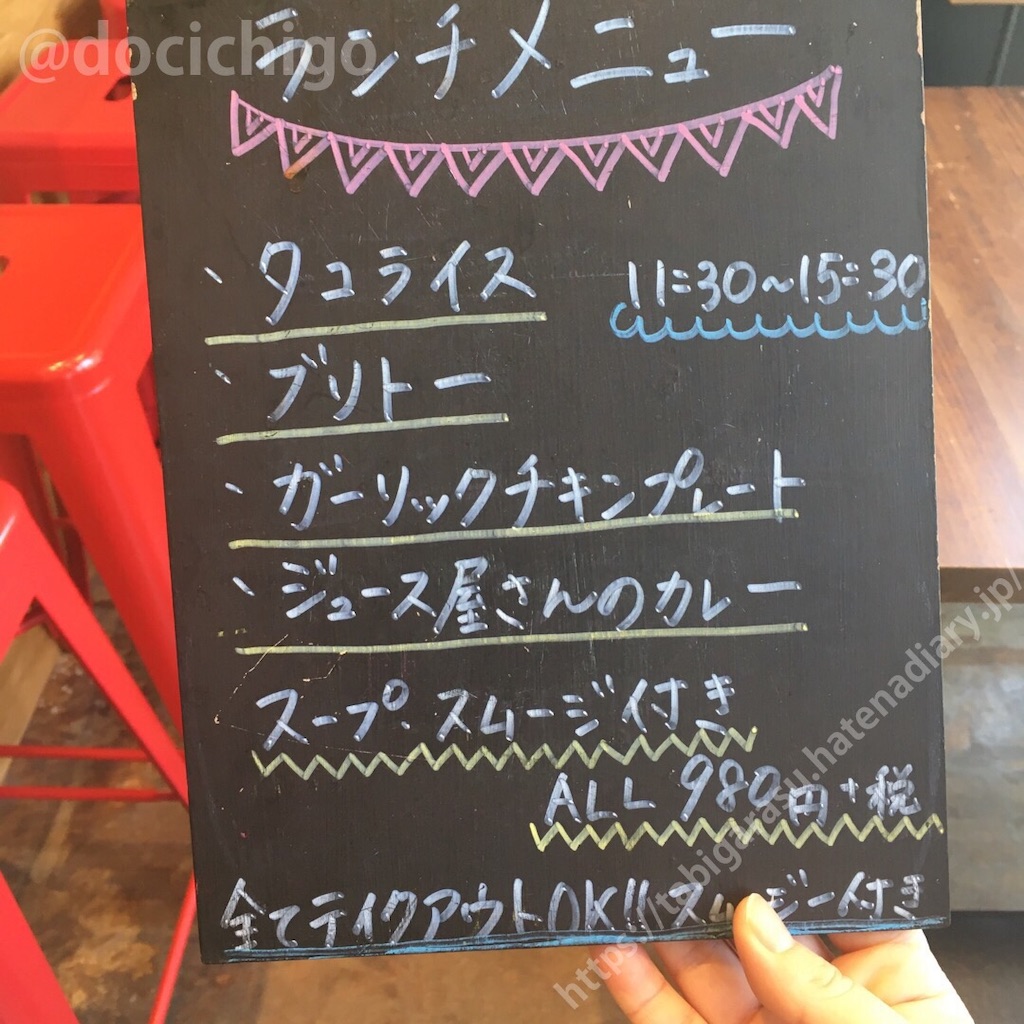 @docichigo
ランチメニュー
、タコライス 11:30~15:30
、ブリトー
、ガーリックチキンプレート
、ジュース屋さんのカレー
スープ、スムージ付き
ALL 980円+税
全てテイクアウトOK!! スムージー付き
https://tobigarasu.hatenadiary.jp/